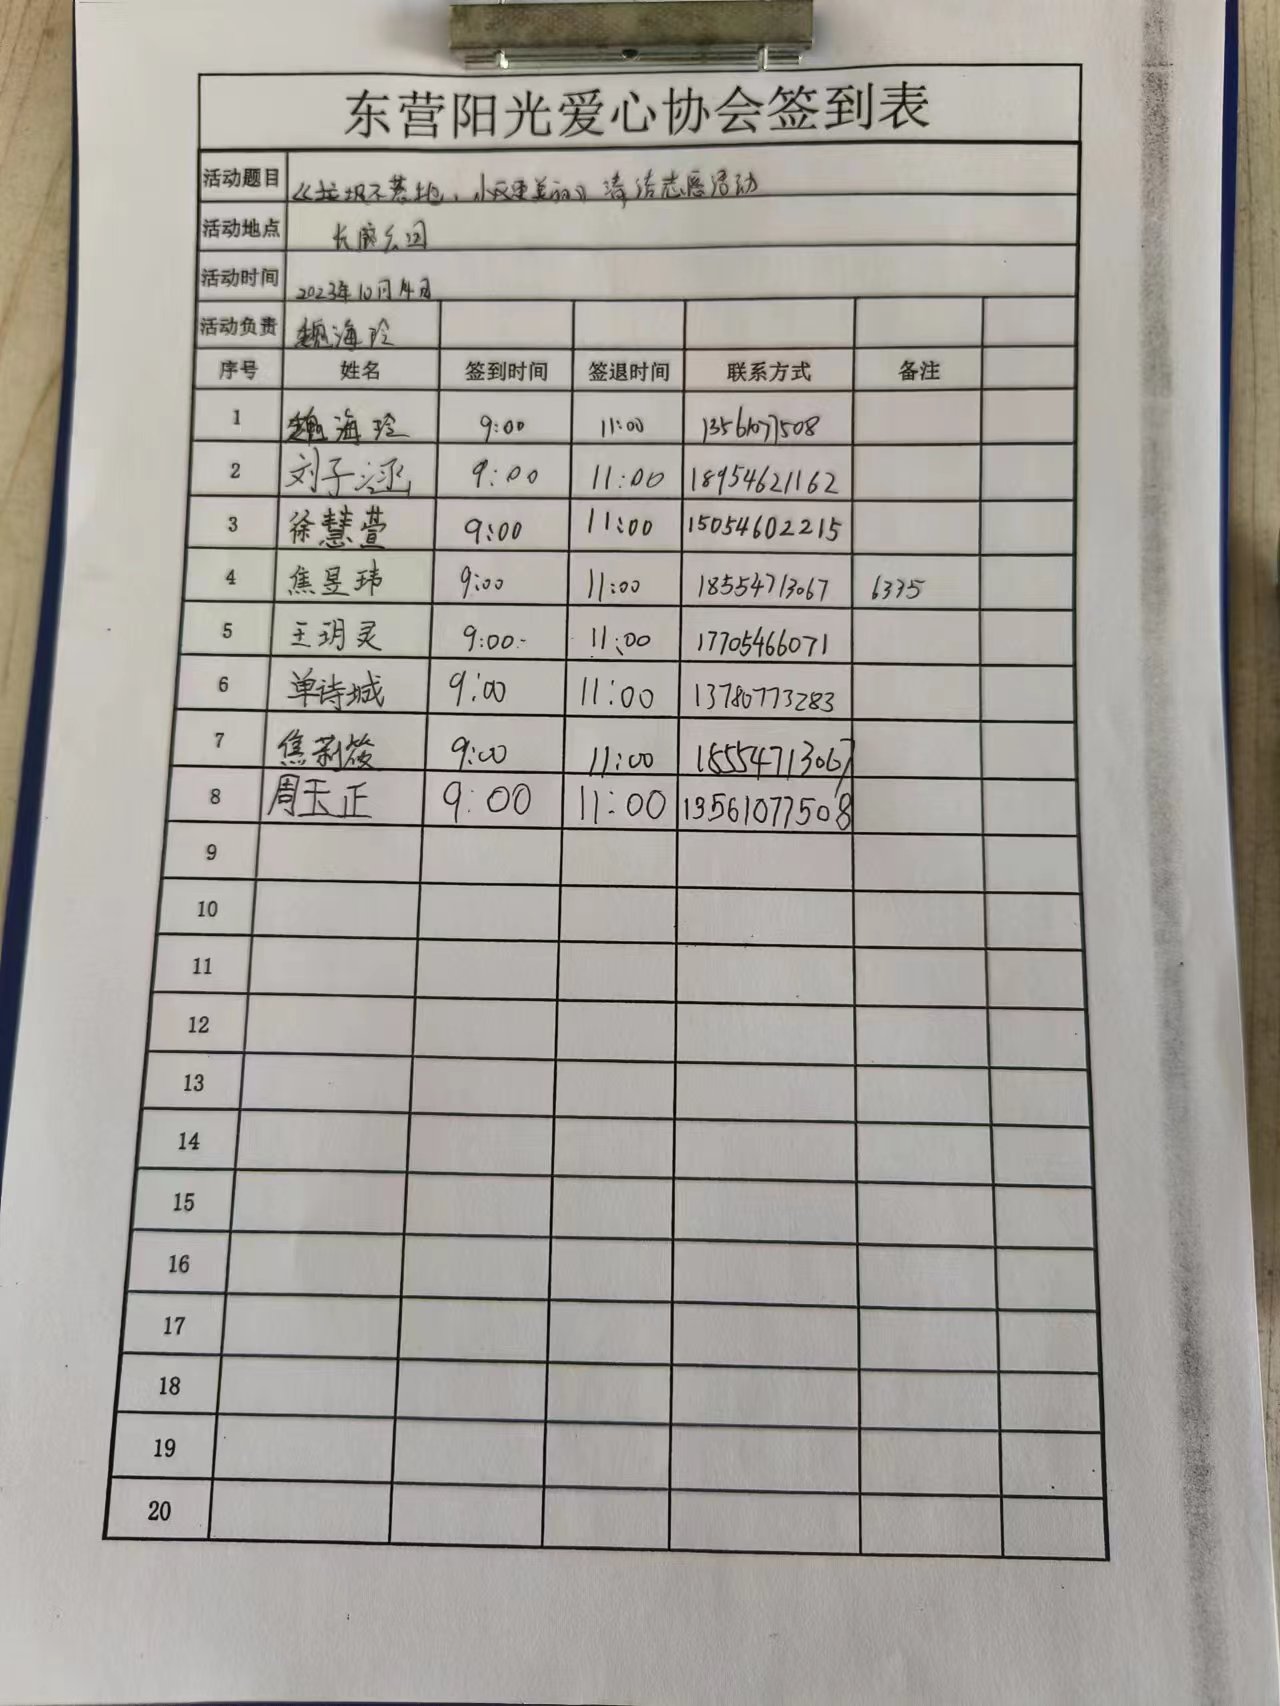 东营阳光爱心协会签到表
活动题目 《垃圾不落地，小区更美丽》清洁志愿活动
活动地点 长廊公园
活动时间 2023年10月14日
活动负责 魏海玲
序号 姓名 签到时间 签退时间 联系方式 备注
1 魏海玲 9:00 11:00 13561077508
2 刘子涵 9:00 11:00 18954621162
3 徐慧萱 9:00 11:00 15054602215
4 焦昱玮 9:00 11:00 18554713067 6335
5 王玥灵 9:00 11:00 17705466071
6 单诗城 9:00 11:00 13780773283
7 焦莉筱 9:00 11:00 18554713067
8 周玉正 9:00 11:00 13561077508
9
10
11
12
13
14
15
16
17
18
19
20